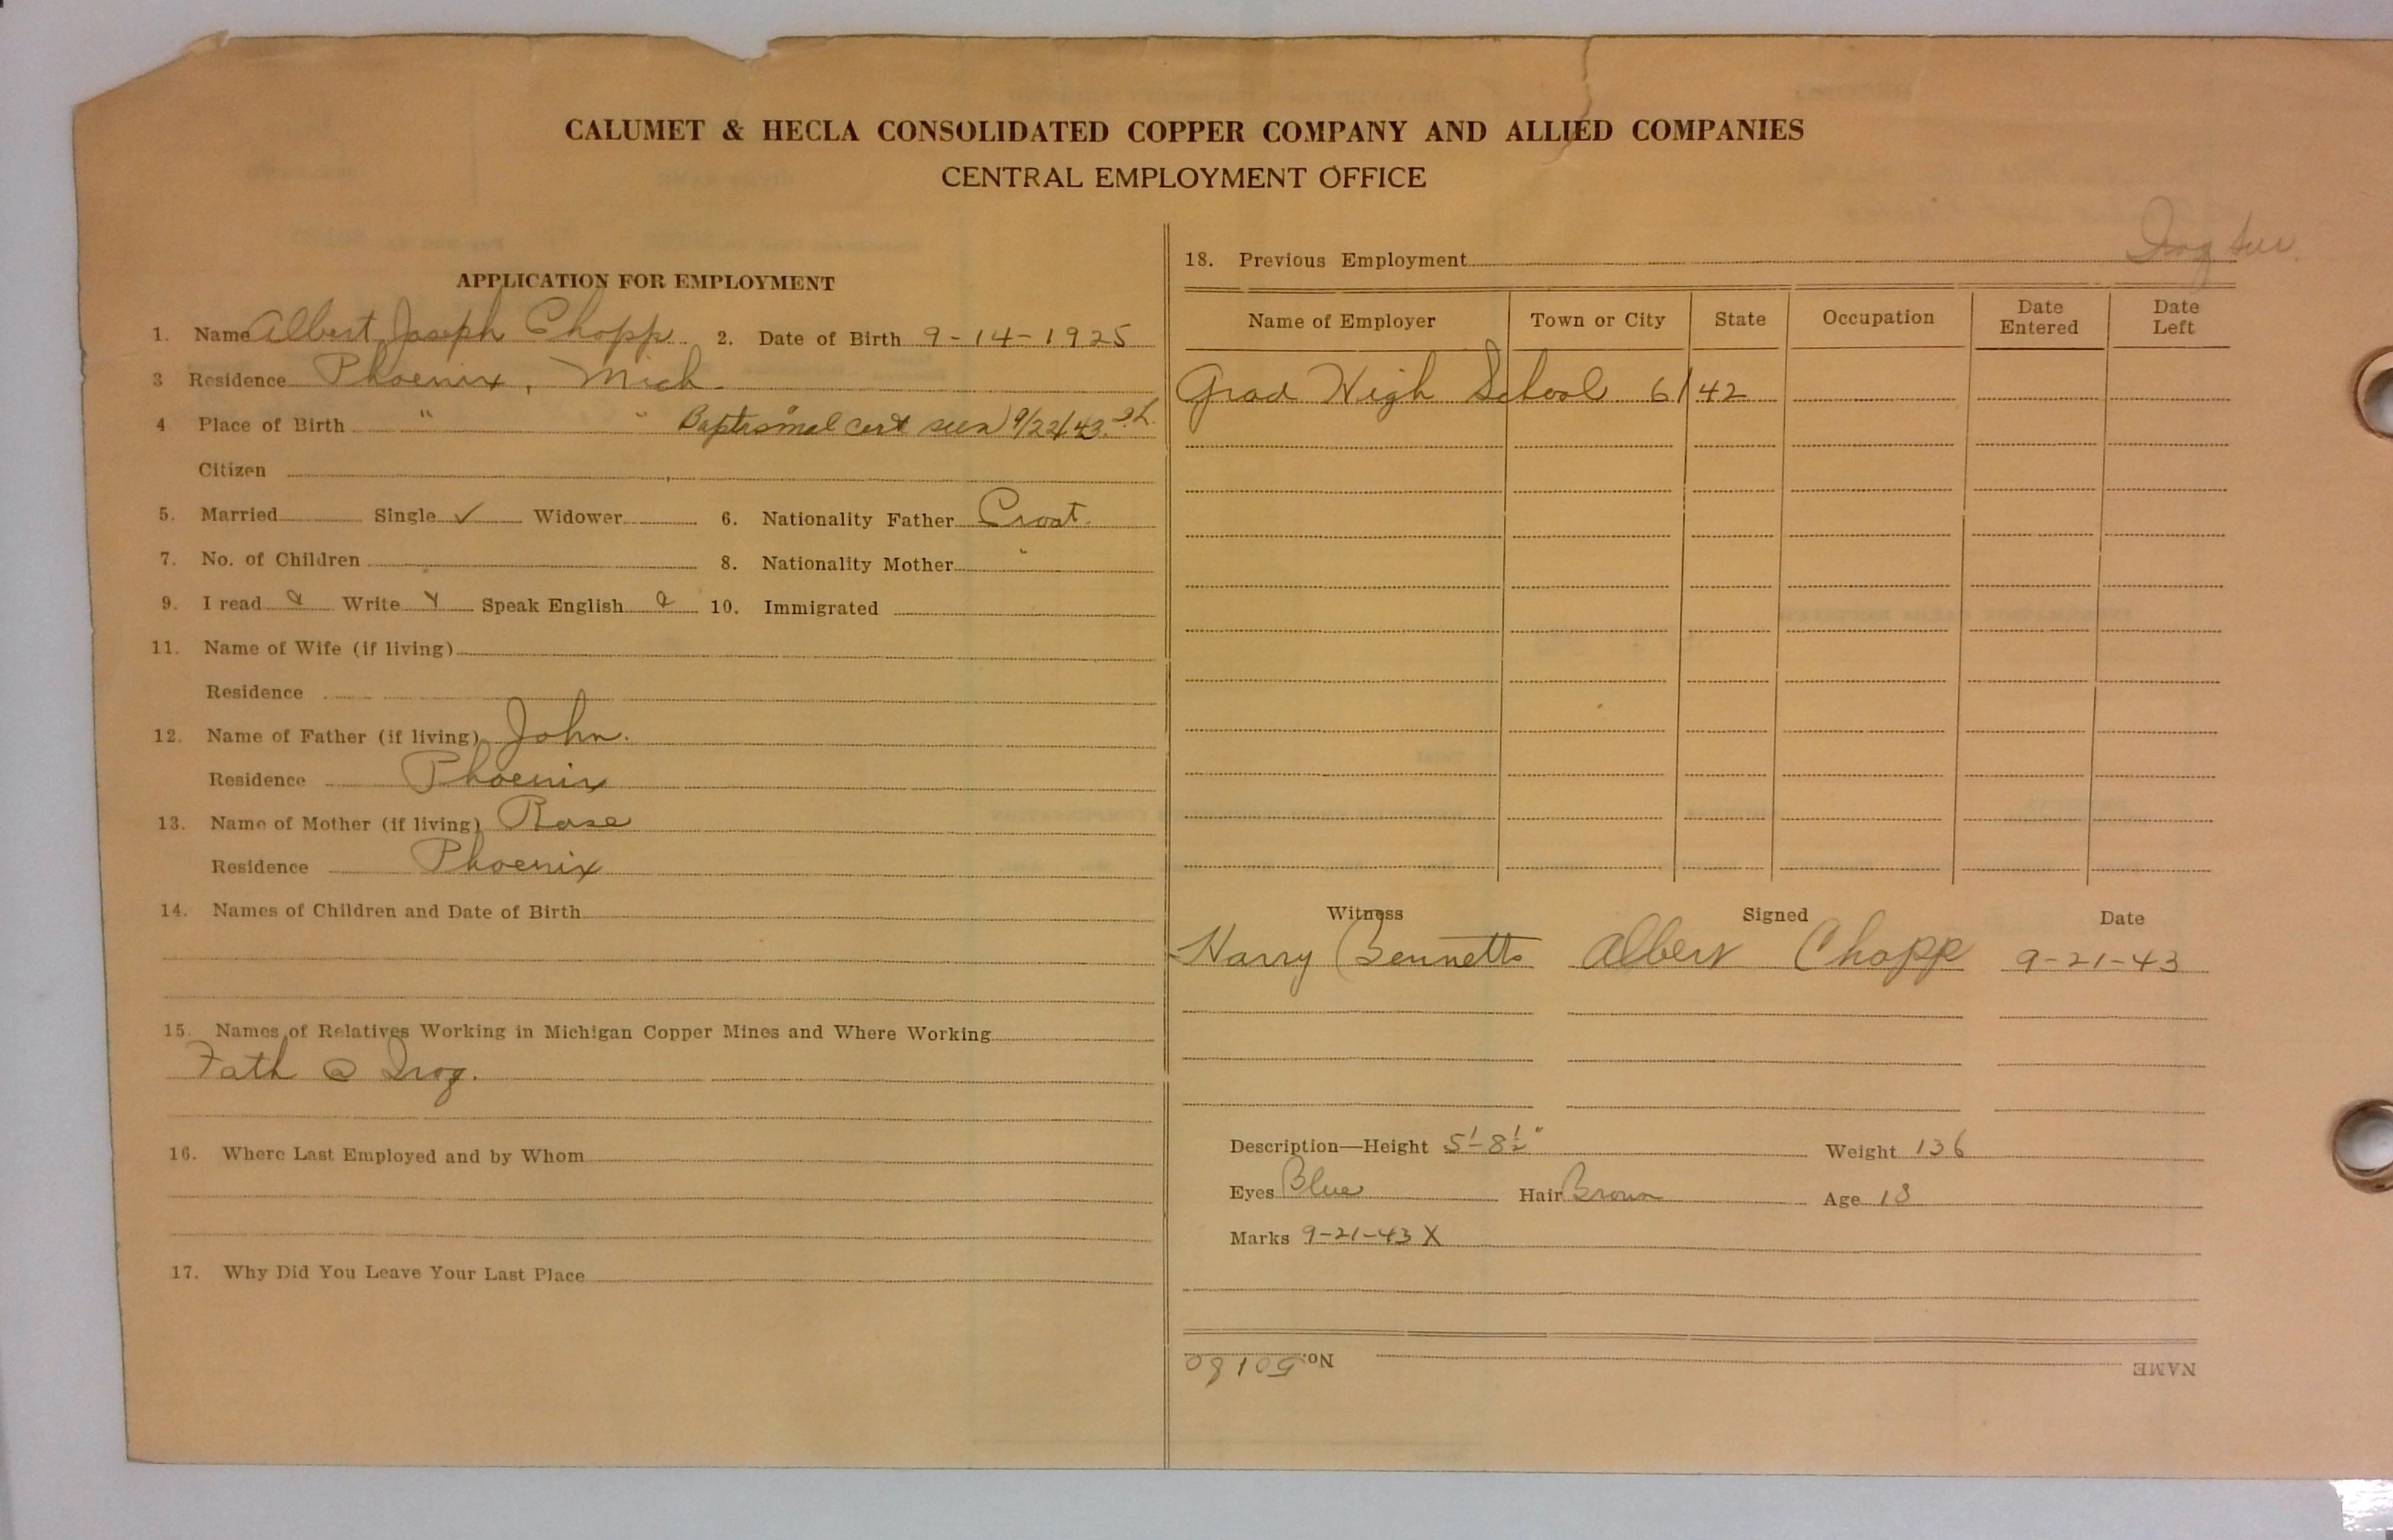 CALUMET & HECLA CONSOLIDATED COPPER COMPANY AND ALLIED COMPANIES
CENTRAL EMPLOYMENT OFFICE
APPLICATION FOR EMPLOYMENT
1. Name Albert Joseph Chopp 2. Date of Birth 9-14-1925
3 Residence Phoenix, Mich.
4 Place of Birth " " Baptismal cert seen 9/22/43
Citizen
5. Married Single ✓ Widower 6. Nationality Father Croat.
7. No. of Children 8. Nationality Mother "
9. I read Write Y Speak English 10. Immigrated
11. Name of Wife (if living)
Residence
12. Name of Father (if living) John.
Residence Phoenix
13. Name of Mother (if living) Rose
Residence Phoenix
14. Names of Children and Date of Birth
15. Names of Relatives Working in Michigan Copper Mines and Where Working
Fath @ Iroq.
16. Where Last Employed and by Whom
17. Why Did You Leave Your Last Place
Iroq
18. Previous Employment
Name of Employer Town or City State Occupation Date Entered Date Left
Grad High School 6/42
Witness Signed Date
Harry Bennetts Albert Chopp 9-21-43
Description—Height 5'-8½" Weight 136
Eyes Blue Hair Brown Age 18
Marks 9-21-43 X
NAME No. 50180